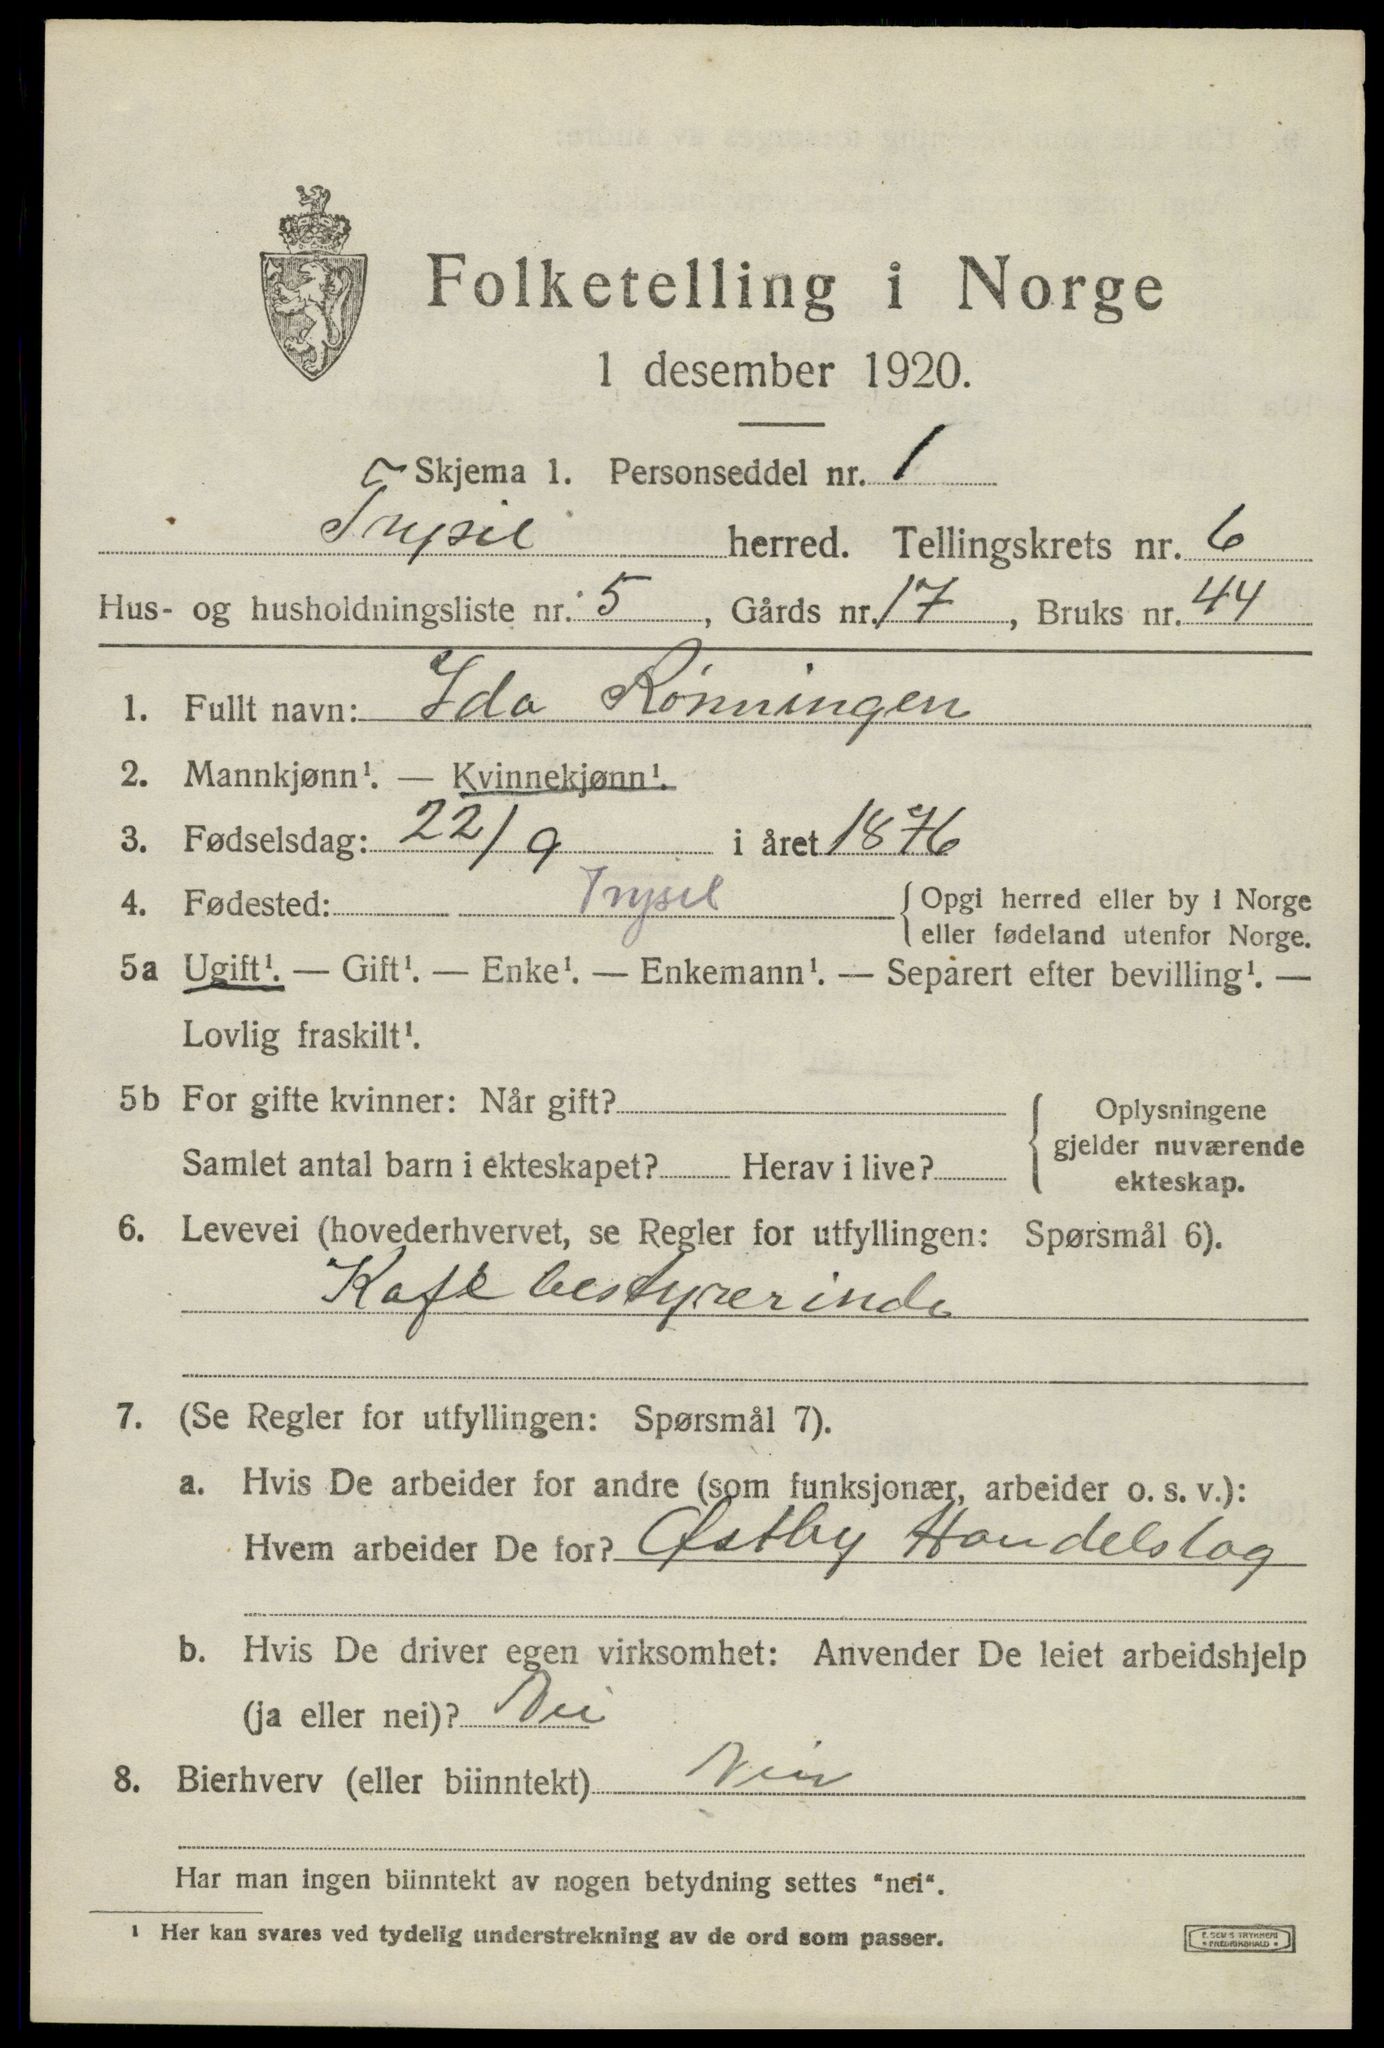 Folketelling i Norge
1 desember 1920.
Skjema 1. Personseddel nr. 1
Trysil herred. Tellingskrets nr. 6
Hus- og husholdningsliste nr. 5, Gårds nr. 17, Bruks nr. 44
1. Fullt navn: Ida Rønningen
2. Mannkjønn¹. — Kvinnekjønn¹.
3. Fødselsdag: 22/9 i året 1876
4. Fødested: Trysil { Opgi herred eller by i Norge
eller fødeland utenfor Norge.
5a Ugift¹. — Gift¹. — Enke¹. — Enkemann¹. — Separert efter bevilling¹. —
Lovlig fraskilt¹.
5b For gifte kvinner: Når gift? { Oplysningene
gjelder nuværende
Samlet antal barn i ekteskapet? Herav i live?
ekteskap.
6. Levevei (hovederhvervet, se Regler for utfyllingen: Spørsmål 6).
Kafe bestyrerinde
7. (Se Regler for utfyllingen: Spørsmål 7).
a. Hvis De arbeider for andre (som funksjonær, arbeider o. s. v.):
Hvem arbeider De for? Østby Handelslag
b. Hvis De driver egen virksomhet: Anvender De leiet arbeidshjelp
(ja eller nei)? Nei
8. Bierhverv (eller biinntekt) Nei
Har man ingen biinntekt av nogen betydning settes "nei".
¹ Her kan svares ved tydelig understrekning av de ord som passer.
E. SEM'S TRYKKERI
• FREDRIKSHALD •